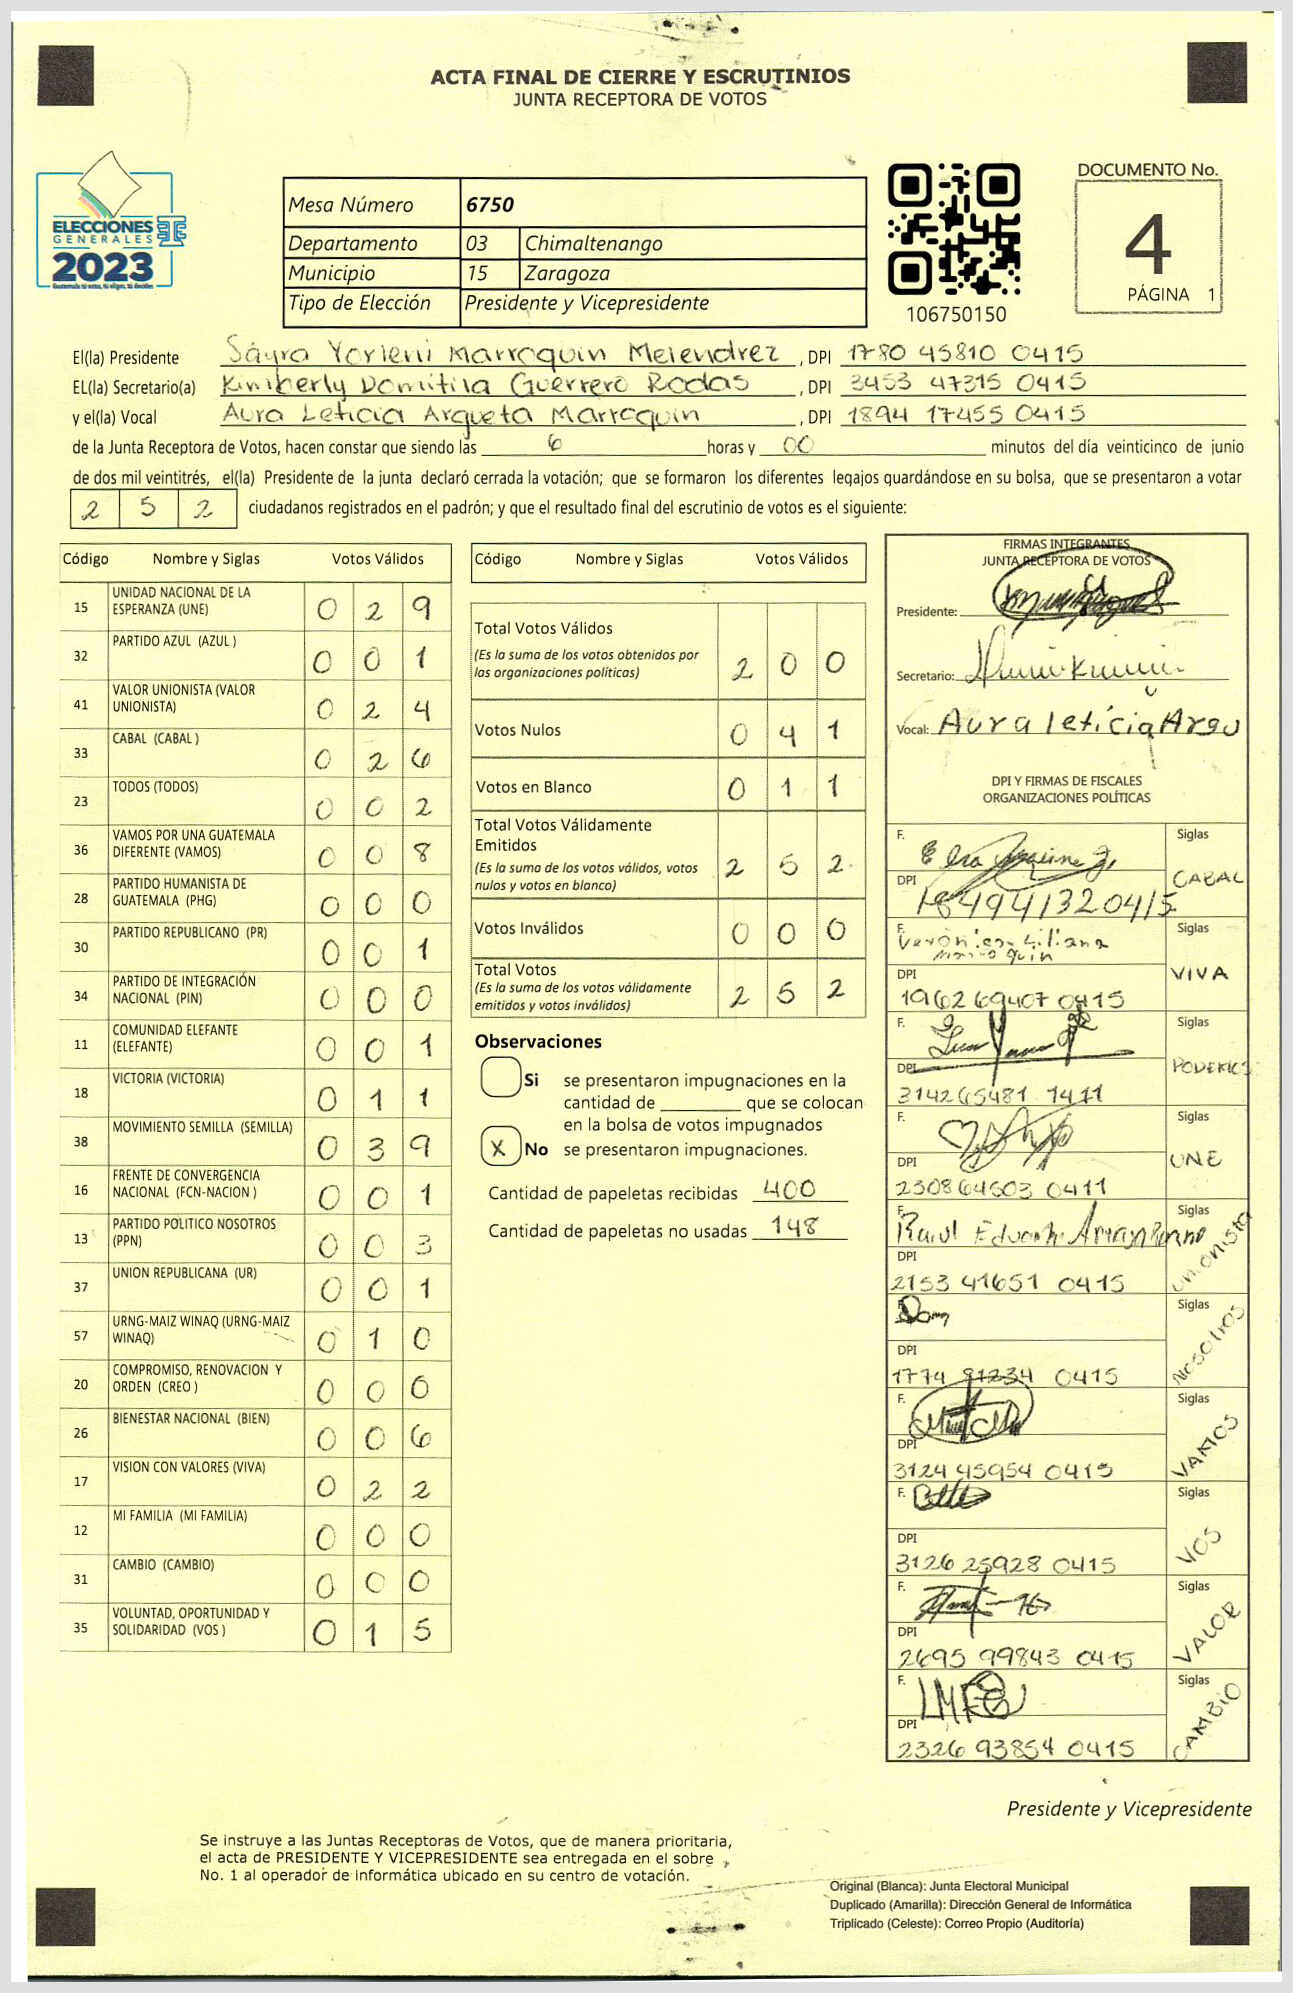 ACTA FINAL DE CIERRE Y ESCRUTINIOS
JUNTA RECEPTORA DE VOTOS
ELECCIONES
GENERALES
2023
Mesa Número 6750
Departamento 03 Chimaltenango
Municipio 15 Zaragoza
Tipo de Elección Presidente y Vicepresidente
106750150
DOCUMENTO No.
4
PÁGINA 1
El(la) Presidente Sáyra Yorleni Marroquin Melendrez, DPI 1780 45810 0415
EL(la) Secretario(a) Kimberly Domitila Guerrero Rodas, DPI 3453 47315 0415
y el(la) Vocal Aura Leticia Argueta Marroquin, DPI 1894 17455 0415
de la Junta Receptora de Votos, hacen constar que siendo las 6 horas y 00 minutos del día veinticinco de junio
de dos mil veintitrés, el(la) Presidente de la junta declaró cerrada la votación; que se formaron los diferentes legajos guardándose en su bolsa, que se presentaron a votar
2 5 2 ciudadanos registrados en el padrón; y que el resultado final del escrutinio de votos es el siguiente:
Código Nombre y Siglas Votos Válidos
15 UNIDAD NACIONAL DE LA
ESPERANZA (UNE) 0 2 9
32 PARTIDO AZUL (AZUL ) 0 0 1
41 VALOR UNIONISTA (VALOR
UNIONISTA) 0 2 4
33 CABAL (CABAL ) 0 2 6
23 TODOS (TODOS) 0 0 2
36 VAMOS POR UNA GUATEMALA
DIFERENTE (VAMOS) 0 0 8
28 PARTIDO HUMANISTA DE
GUATEMALA (PHG) 0 0 0
30 PARTIDO REPUBLICANO (PR) 0 0 1
34 PARTIDO DE INTEGRACIÓN
NACIONAL (PIN) 0 0 0
11 COMUNIDAD ELEFANTE
(ELEFANTE) 0 0 1
18 VICTORIA (VICTORIA) 0 1 1
38 MOVIMIENTO SEMILLA (SEMILLA) 0 3 9
16 FRENTE DE CONVERGENCIA
NACIONAL (FCN-NACION ) 0 0 1
13 PARTIDO POLITICO NOSOTROS
(PPN) 0 0 3
37 UNION REPUBLICANA (UR) 0 0 1
57 URNG-MAIZ WINAQ (URNG-MAIZ
WINAQ) 0 1 0
20 COMPROMISO, RENOVACION Y
ORDEN (CREO ) 0 0 0
26 BIENESTAR NACIONAL (BIEN) 0 0 6
17 VISION CON VALORES (VIVA) 0 2 2
12 MI FAMILIA (MI FAMILIA) 0 0 0
31 CAMBIO (CAMBIO) 0 0 0
35 VOLUNTAD, OPORTUNIDAD Y
SOLIDARIDAD (VOS ) 0 1 5
Código Nombre y Siglas Votos Válidos
Total Votos Válidos
(Es la suma de los votos obtenidos por
las organizaciones políticas) 2 0 0
Votos Nulos 0 4 1
Votos en Blanco 0 1 1
Total Votos Válidamente
Emitidos
(Es la suma de los votos válidos, votos
nulos y votos en blanco) 2 5 2
Votos Inválidos 0 0 0
Total Votos
(Es la suma de los votos válidamente
emitidos y votos inválidos) 2 5 2
Observaciones
Si se presentaron impugnaciones en la
cantidad de ________ que se colocan
en la bolsa de votos impugnados
X No se presentaron impugnaciones.
Cantidad de papeletas recibidas 400
Cantidad de papeletas no usadas 148
FIRMAS INTEGRANTES
JUNTA RECEPTORA DE VOTOS
Presidente:
Secretario:
Vocal: Aura leticia Argu
DPI Y FIRMAS DE FISCALES
ORGANIZACIONES POLÍTICAS
F. Siglas
CABAL
DPI
F. Veronica Liliana
Marroquin
Siglas
VIVA
DPI
1962 69407 0415
F. Siglas
PODEMOS
DPI
314265481 1411
F. Siglas
UNE
DPI
230864503 0411
F. Raul Eduardo
Siglas
unionista
DPI
2153 41651 0415
F. Siglas
NOSOTROS
DPI
1774 91234 0415
F. Siglas
VAMOS
DPI
3124 45954 0415
F. Siglas
VOS
DPI
3126 25928 0415
F. Siglas
VALOR
DPI
2695 99843 0415
F. Siglas
CAMBIO
DPI
2326 93854 0415
Presidente y Vicepresidente
Se instruye a las Juntas Receptoras de Votos, que de manera prioritaria,
el acta de PRESIDENTE Y VICEPRESIDENTE sea entregada en el sobre
No. 1 al operador de informática ubicado en su centro de votación.
Original (Blanca): Junta Electoral Municipal
Duplicado (Amarilla): Dirección General de Informática
Triplicado (Celeste): Correo Propio (Auditoría)